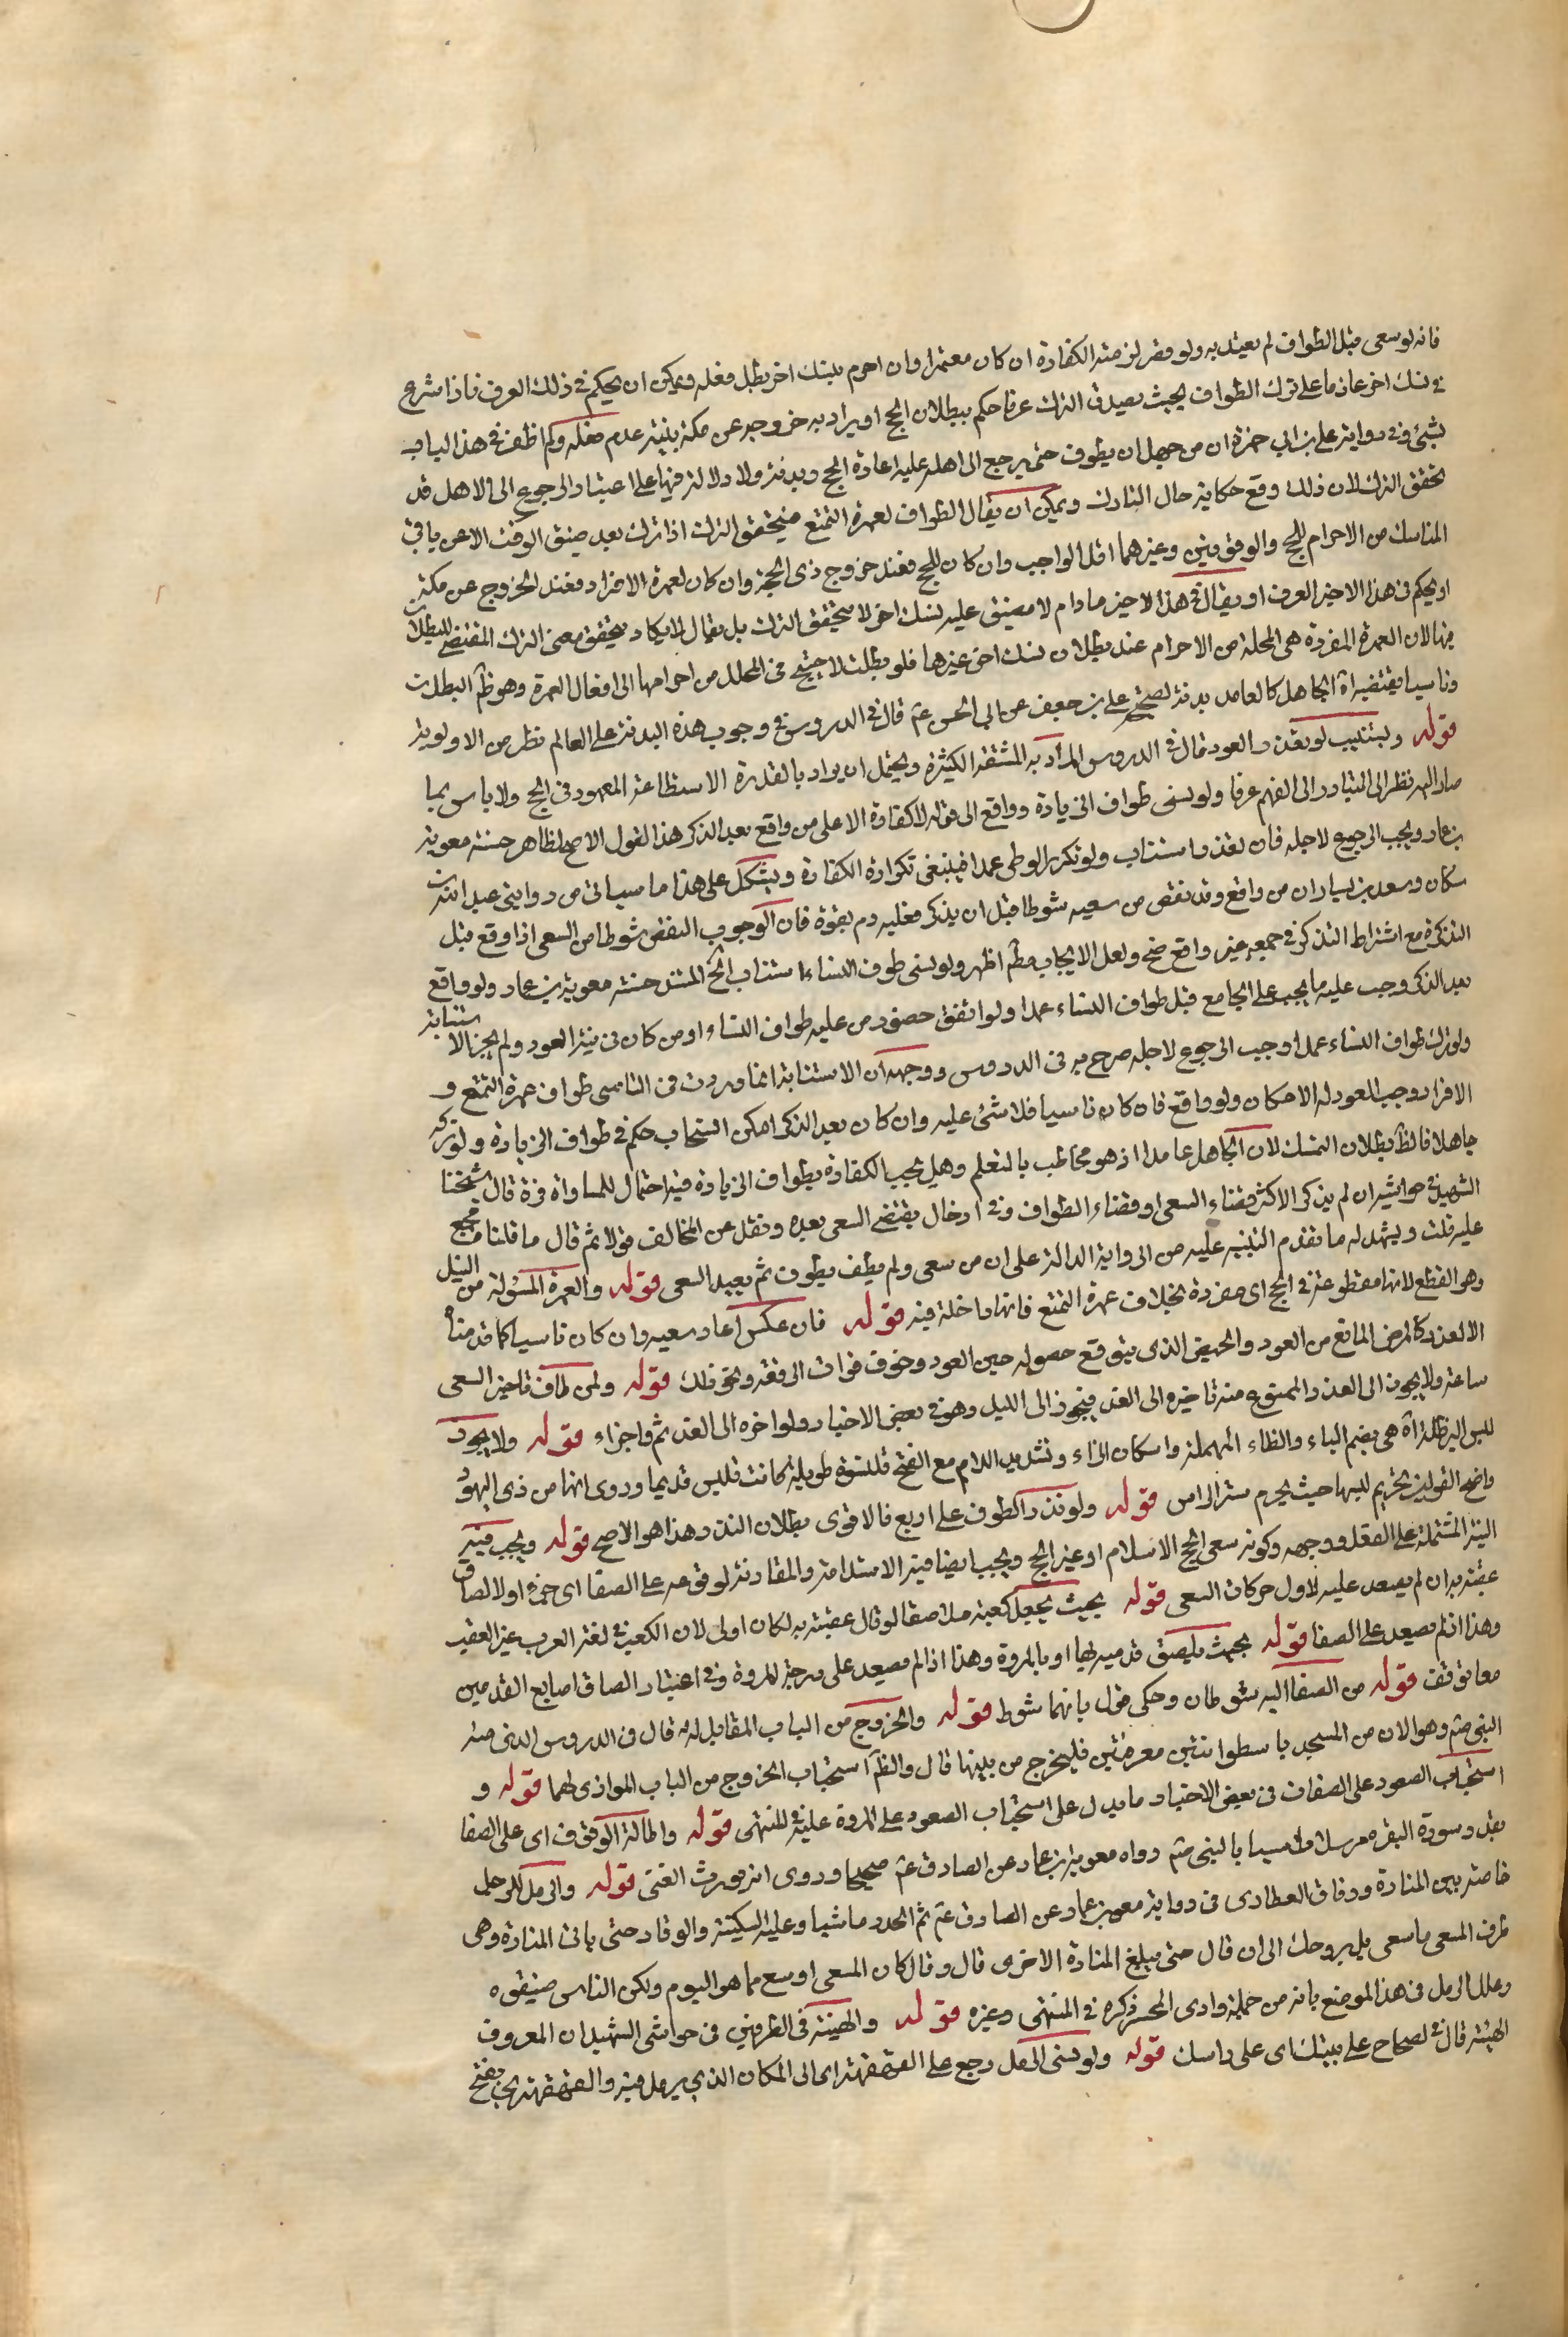 فانه لو سعى قبل الطواف لم يعتد به ولو قصر لزمته الكفارة ان كان معتمرا وان احرم بنسك اخر بطل فعله ويمكن ان يحكم في ذلك العرف فاذا شرع
في نسك اخر عازما على ترك الطواف بحيث يصدق الترك عرفا حكم ببطلان الحج او يراد به خروجه عن مكة بنية عدم فعله ولم اظفر في هذا الباب
بشئ وفي رواية علي بن ابي حمزة ان من جهل ان يطوف حتى يرجع الى اهله عليه اعادة الحج وبدنة ولا دلالة فيها على اعتبار الرجوع الى الاهل في
تحقق الترك لان ذلك وقع حكاية حال التارك ويمكن ان يقال الطواف لعمرة التمتع فيتحقق الترك اذا ترك بعد ضيق الوقت الا عن باقي
المناسك من الاحرام للحج والوقوفين وغيرهما اقل الواجب وان كان للحج فعند خروج ذي الحجة وان كان لعمرة الافراد فعند الخروج عن مكة
او يحكم في هذا الاخير العرف او يقال في هذا الاخير مادام لا مضيق عليه لنسك اخر لا يتحقق الترك بل يقال لا يكاد يتحقق معنى الترك المقتضي للبطلان
فيها لان العمرة المفردة هي المحللة من الاحرام عند بطلان نسك اخر غيرها فلو بطلت لاحتيج في المحلل من احرامها الى افعال العمرة وهو ظم البطلان
وناسيا يقتضيه اه الجاهل كالعامد بدنة لصحيح علي بن جعفر عن ابي الحسن عم قال في الدروس في وجوب هذه البدنة على العالم نظر من الاولوية
قوله ويستنيب لو تعذر العود قال في الدروس المراد به المشقة الكثيرة ويحتمل ان يراد بالقدرة الاستطاعة المعهودة في الحج ولا باس بما
صار اليه نظرا الى التبادر الى الفهم عرفا ولو نسى طواف الزيارة وواقع الى قوله لا كفارة الا على من واقع بعد الذكر هذا القول الاصح لظاهر حسنة معوية
بن عمار ويجب الرجوع لاجله فان تعذر استناب ولو تكرر الوطى عمدا فينبغي تكرار الكفارة ويشكل على هذا ما سياتي من روايتي عبد الله بن
مسكان وسعد بن يسار ان من واقع وقد نقص من سعيه شوطا قبل ان يذكر فعليه دم بقرة فان الوجوب النقص شوطا من السعى اذا وقع قبل
التذكرة مع اشتراط التذكر في جميعه غير واقع صح ولعل الايجاب مطم اظهر ولو نسى طواف النساء استناب الخ المستند حسنة معوية بن عمار ولو واقع
بعد الذكر وجب عليه ما يجب على الجامع قبل طواف النساء عمدا ولو اتفق حضور من عليه طواف النساء او من كان في نيته العود ولم يجز الاستنابة
ولو ترك طواف النساء عمدا وجب الرجوع لاجله صرح به في الدروس ووجهه ان الاستنابة انما وردت في الناسي طواف عمرة التمتع و
الافراد وجب العود له الامكان ولو واقع فان كان ناسيا فلا شئ عليه وان كان بعد الذكر امكن استحاب حكم في طواف الزيارة ولو تركه
جاهلا فالظ بطلان النسك لان الجاهل عامدا اذ هو مخاطب بالتعلم وهل يجب الكفارة بطواف الزيارة فيه احتمال للمساواة قال شيخنا
الشهيد في حواشيه ان لم يذكر الاكثر قضاء السعى او قضاء الطواف وفي ادخال يقتضي السعى بعده ونقل عن المخالف قولا ثم قال ما قلنا مجمع
عليه قلت ويشهد له ما تقدم التنبيه عليه من الرواية الدالة على ان من سعى ولم يطف يطوف ثم يعيد السعى قوله والعمرة المسؤلة من النيل
وهو القطع لانها مقطوعة في الحج اى مفردة بخلاف عمرة التمتع فانها داخلة فيه قوله فان عكس اعاد سعيه وان كان ناسيا كما قدمناه
الا لعذر كالمرض المانع من العود والحيض الذي يتوقع حصوله حين العود وخوف فوات الرفقة ونحو ذلك قوله ولمن طاف تاخير السعى
ساعة ولا يجوز الى الغد والممنوع منه تاخيره الى الغد فيجوز الى الليل وهو في بعض الاخبار ولو اخره الى الغد ثم واجزاء قوله ولا يجوز
لبس البرطلة اه هي بضم الباء والطاء المهملة واسكان الراء وتشديد اللام مع الفتح قلنسوة طويلة كانت تلبس قديما وروى انها من ذى اليهود
واصح القولين تحريم لبسها حيث يحرم ستر الراس قوله ولو نذر الطوف على اربع فالاقوى بطلان النذر وهذا هو الاصح قوله ويجب فيه
النية المشتملة على الفعل ووجهه وكونه سعى الحج الاسلام او غير الحج ويجب ايضا فيه الاستدامة والمقارنة لوقوعه على الصفا اى جزء او لالصاق
عقبه به ان لم يصعد عليه لاول حركات السعى قوله بحيث يجعل كعبه ملاصقا لو قال عقبه به لكان اولى لان الكعب في لغة العرب غير العقب
وهذا ان لم يصعد على الصفا قوله بحيث يلصق قدميه بها او بالمروة وهذا اذا لم يصعد على درجة المروة وفي اعتبار الصاق اصابع القدمين
معا توقف قوله من الصفا اليه شوطان وحكى قول بانهما شوط قوله والخروج من الباب المقابل له قال في الدروس الذي منه
النبي صم وهو الان من المسجد باسطوانتين معرفتين فليخرج من بينهما قال والظ استحباب الخروج من الباب الموازي لهما قوله و
استحباب الصعود على الصفا في بعض الاخبار ما يدل على استحباب الصعود على المروة عليه المنتهى قوله واطالة الوقوف اى على الصفا
بقدر سورة البقرة مرسلا تاسيا بالنبي صم رواه معوية بن عمار عن الصادق عم صحيحا وروى انه يورث الغنى قوله والرمل للرجل
خاصة بين المنارة وزقاق العطارين في رواية معوية بن عمار عن الصادق عم ثم انحدر ماشيا وعليك السكينة والوقار حتى ياتي المنارة وهي
طرف المسعى فاسعى ملئ فروجك الى ان قال حتى يبلغ المنارة الاخرى قال وقال كان المسعى اوسع مما هو اليوم ولكن الناس ضيقوه
وعلل الرمل في هذا الموضع بانه من جملة وادي المحسر ذكره في المنتهى وغيره قوله والهينة في الطرفين في حواشي الشهيد ان المعروف
الهينة قال في الصحاح على هينتك اى على راسك قوله ولو نسى الرمل رجع على القهقهرى اى الى المكان الذي يرمل فيه والقهقرى بفتح